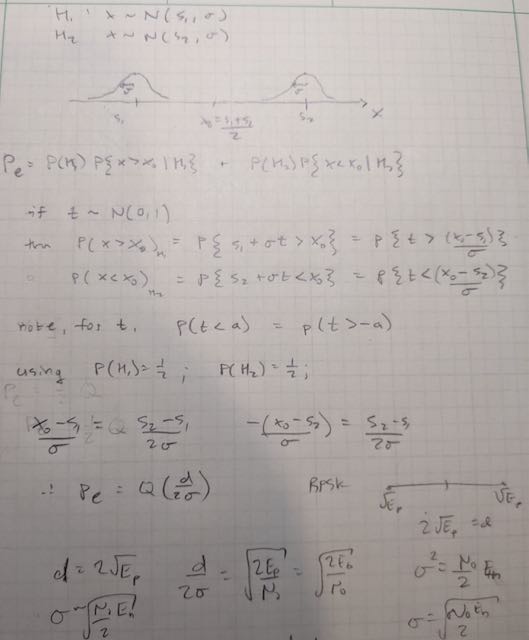 H₁ x ~ N(s₁, σ)
H₂ x ~ N(s₂, σ)
σ σ
s₁ x₀ = (s₁+s₂)/2 s₂ x
Pe = P(H₁) P{x>x₀|H₁} + P(H₂) P{x<x₀|H₂}
if t ~ N(0,1)
then P(x>x₀)_H₁ = P{s₁+σt>x₀} = P{t > (x₀-s₁)/σ}
P(x<x₀)_H₂ = P{s₂+σt<x₀} = P{t < (x₀-s₂)/σ}
note, for t, P(t<a) = P(t>-a)
using P(H₁)=1/2; P(H₂)=1/2;
(x₀-s₁)/σ = (s₂-s₁)/2σ -(x₀-s₂)/σ = (s₂-s₁)/2σ
∴ Pe = Q(d/2σ) BPSK √Ep √Ep
2√Ep = d
d = 2√Ep d/2σ = √(2Ep/N₀) = √(2Eb/N₀) σ² = N₀/2 Eb
σ = √(N₀/2 Eb) σ = √(N₀Eb/2)